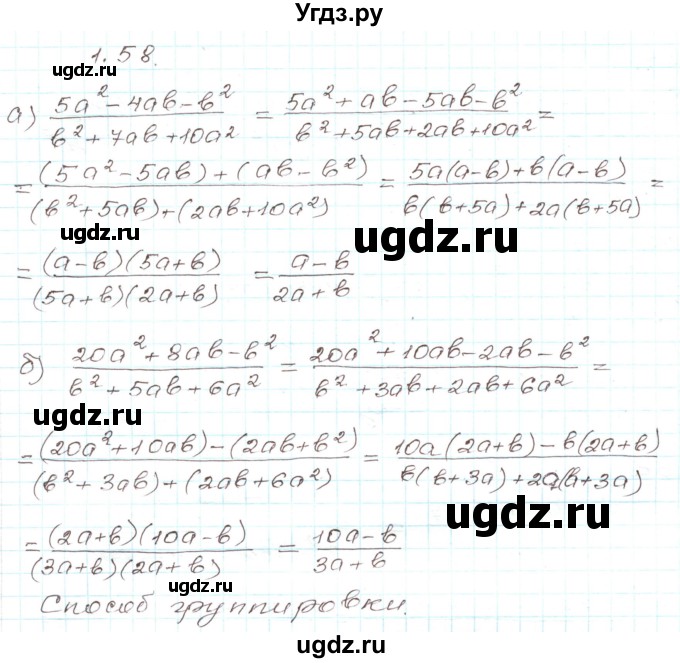 Угдз.ру
1.58.
ugdz.ru
а) (5a² - 4ab - b²)/(b² + 7ab + 10a²) = (5a² + ab - 5ab - b²)/(b² + 5ab + 2ab + 10a²) =
ugdz.ru
= ((5a² - 5ab) + (ab - b²))/((b² + 5ab) + (2ab + 10a²)) = (5a(a - b) + b(a - b))/(b(b + 5a) + 2a(b + 5a)) =
ugdz.ru
ugdz.ru
= ((a - b)(5a + b))/((5a + b)(2a + b)) = (a - b)/(2a + b)
б) (20a² + 8ab - b²)/(b² + 5ab + 6a²) = (20a² + 10ab - 2ab - b²)/(b² + 3ab + 2ab + 6a²) =
ugdz.ru
ugdz.ru
= ((20a² + 10ab) - (2ab + b²))/((b² + 3ab) + (2ab + 6a²)) = (10a(2a + b) - b(2a + b))/(b(b + 3a) + 2a(b + 3a))
ugdz.ru
= ((2a + b)(10a - b))/((3a + b)(2a + b)) = (10a - b)/(3a + b)
ugdz.ru
Способ группировки.
ugdz.ru
ugdz.ru